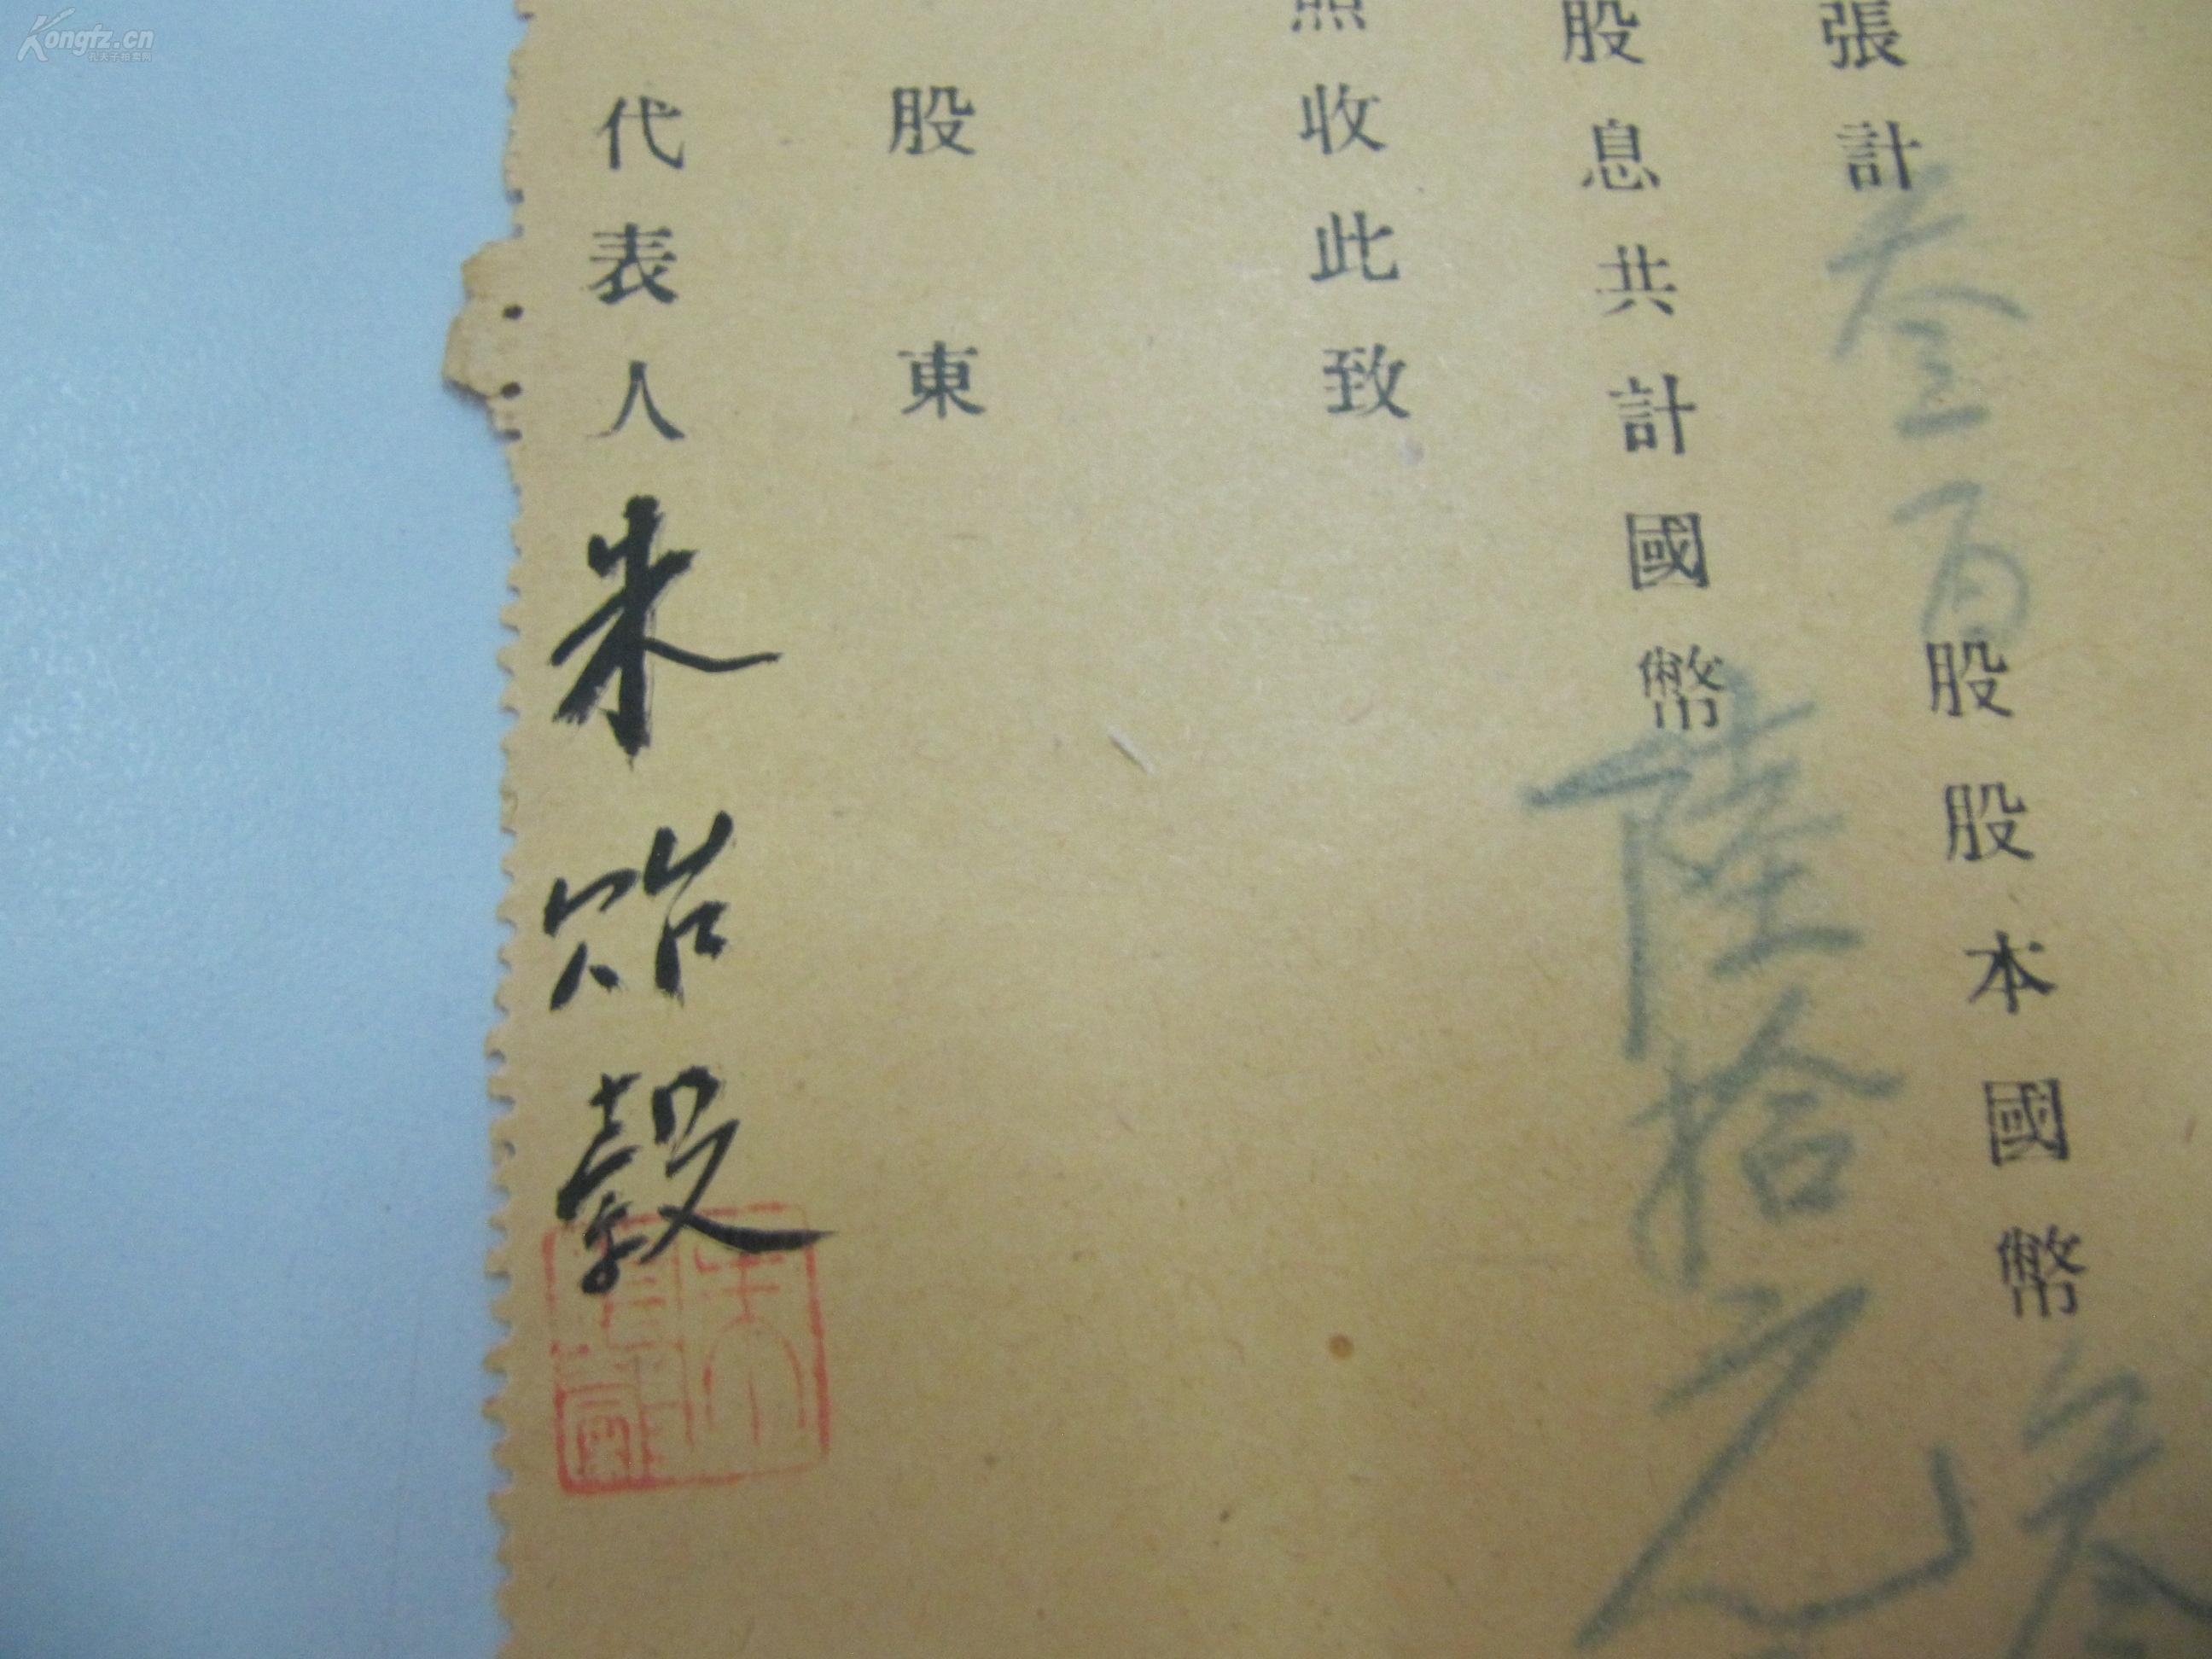 張計叁百股股本國幣
股息共計國幣陸拾元
照收此致
股東
代表人朱貽穀
Kongfz.cn